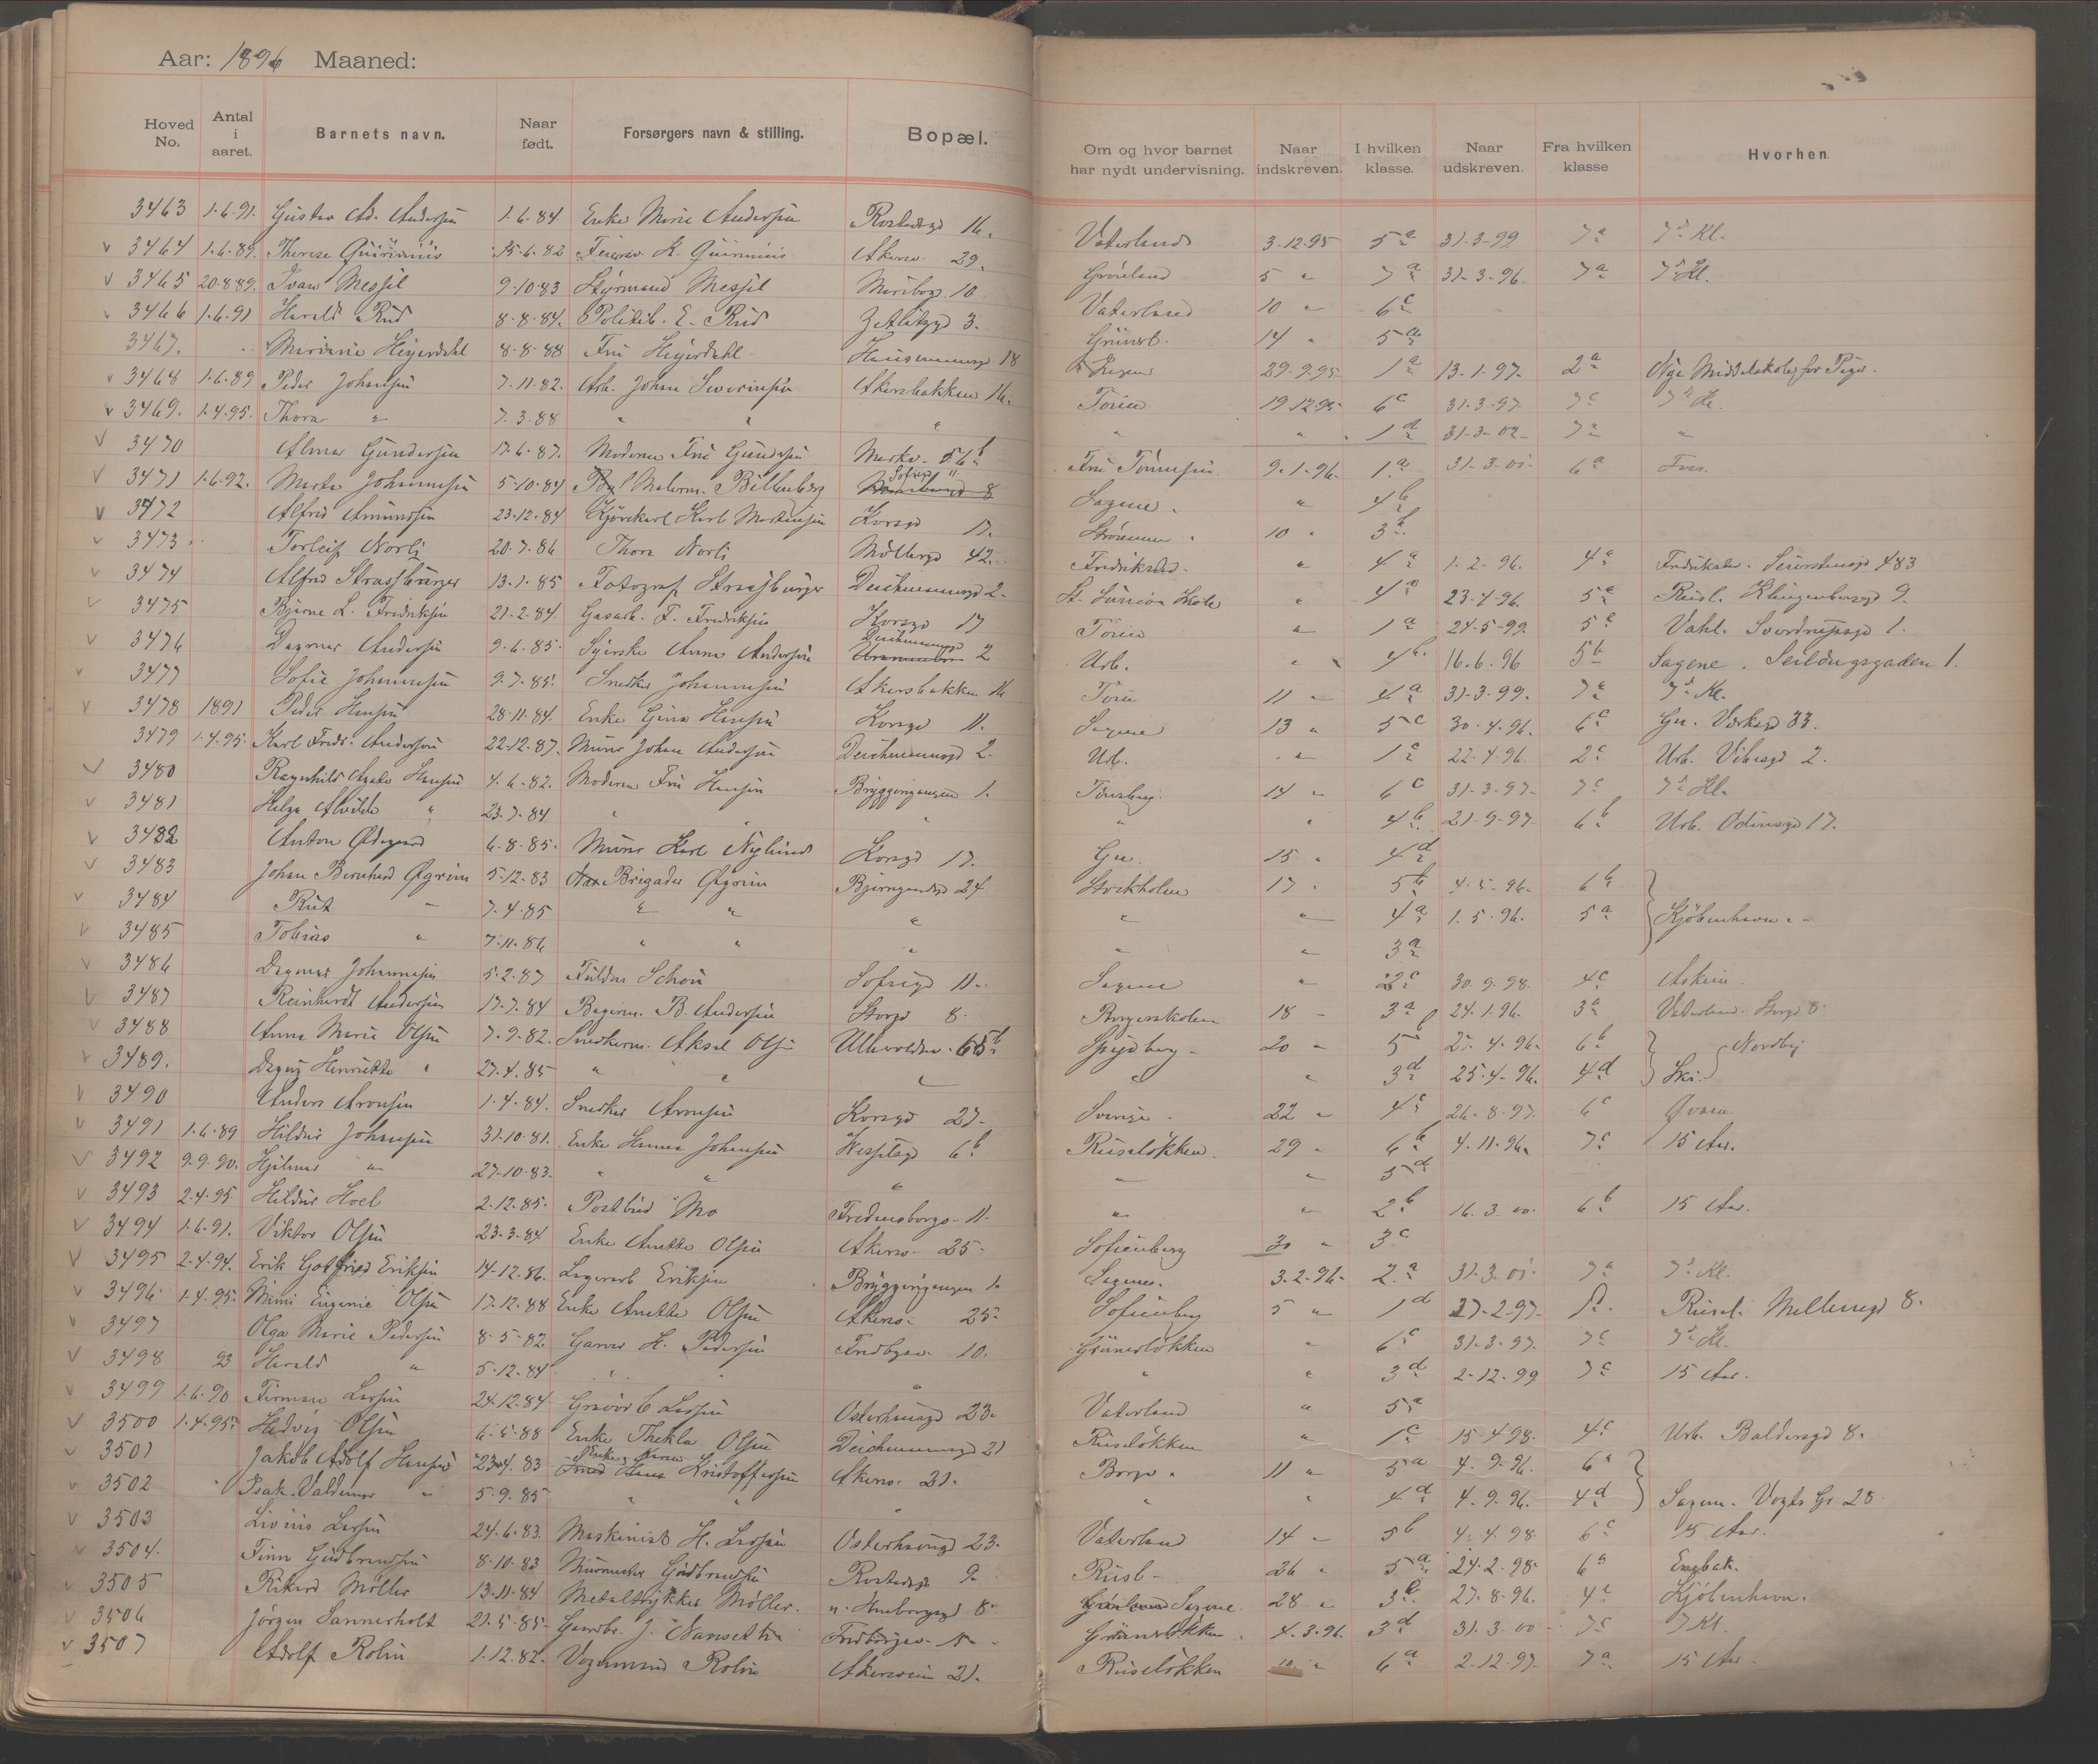 Aar: 1896 Maaned:
Hoved No. Antal i aaret. Barnets navn. Naar født. Forsørgers navn & stilling. Bopæl. Om og hvor barnet har nydt undervisning. Naar indskreven. I hvilken klasse. Naar udskreven. Fra hvilken klasse Hvorhen.
3463 1.6.91. Gustav Ad. Andersen 1.6.84. Enke Marie Andersen Rostedsgd 16. Vaterland 3.12.95 5a 31.3.99 7a 7d Kl.
v 3464 1.6.89. Therese 15.6.82 Akersv. 29. Grönland 5 " 7a 31.3.96. 7a 7d Kl.
v 3465 20.8.89. Ivar Messel 9.10.83 Styrmand Messel Maribog. 10 Vaterland 10 " 6c
3466 1.6.91 Harald Rud 8.8.84. Politib. E. Rud Zetlitzgd 3. Grünerl. 14 " 5a
3467. Heyerdahl 8.8.88 Fru Heyerdahl Hausmannsgd 18 29.9.95 1a 13.1.97. 2a Nye Middelskole for Piger.
v 3468 1.6.89 Peder Johansen 7.11.82. Arb. Johan Severinsen Akersbakken 16. Töien 19.12.95 6c 31.3.97. 7c 7d Kl.
v 3469. 1.4.95. Thora " 7.3.88 " " " " " 1a 31.3.02. 7a "
v 3470 Gundersen 17.6.87. Moderen Fru Gundersen Markv. 56b Fru 9.1.96. 1a 6a
v 3471 1.6.92. Marta Johannesen 5.10.84 Malerm. Sofiesgd 11 Sagene. " 4b
v 3472 Alfred Amundsen 23.12.84 Kjörekarl Karl Martinsen Korsgd 17. 10 " 3b
v 3473 Torleif Norli 20.7.86 Thora Norli Möllergd 42. Fredrikstad. " 4a 1.2.96. 4a 483
v 3474 Alfred Strassburger 13.1.85 Fotograf Strassburger Deichmannsgd 2. Skole " 4a 23.4.96. 5a Rusl. Klingenbergd 9.
v 3475 Bjarne L. Fredriksen 21.2.84. Gasarb. F. Fredriksen Korsgd 17 Töien " 1a 24.5.99. 5c Vahl. Sverdrupsgd 1.
v 3476 Dagmar Andersen 9.6.85. Syerske Anna Andersen Deichmannsgd 2 Urb. " 4b. 16.6.96 5b Sagene. Seildugsgaden 1.
v 3477 Sofie Johannesen 9.7.85. Snedker Johannesen Akersbakken 16 Töien 11 " 4a 31.3.99. 7a 7d Kl.
v 3478 1891 Peder Hansen 28.11.84. Enke Gina Hansen Korsgd 11. Sagene 13 " 5c 30.4.96. 6c Grl. 33.
3479 1.4.95. Karl Fredr. Andersen 22.12.87. Murer Johan Andersen Deichmannsgd 2. Urb. " 1c 22.4.96. 2c Urb. Vibesgd 2.
v 3480 Ragnhild Agate Hansen 4.6.82. Moderen Fru Hansen Bryggerigangen 1. Tönsberg. 14 " 6c 31.3.97. 7c 7d Kl.
v 3481 Helga Alvilde " 23.7.84 " " " " " 4b. 21.9.97. 6b Urb. Odinsgd 17.
v 3482 Anton Ødegaard 6.8.85. Murer Karl Nylund Korsgd 17. 15 " 4d
v 3483 Johan Bernhard Øgrim 5.12.83 Brigader Øgrim Bjerregaardsgd 24 Stockholm 17 " 5b 4.5.96. 6b
v 3484 Rut " 7.4.85 " " " " " 4a 1.5.96. 5a Kjöbenhavn
v 3485 Tobias " 7.11.86 " " " " " 3a
v 3486 Dagmar Johannesen 5.2.87 Schou Sofiegd 11. Sagene " 2c 30.9.98. 4c Askim
v 3487 Reinhardt Andersen 17.7.84 Bagerm. B. Andersen Storgd 8. Borgerskolen 18 " 3a 24.1.96. 3a Vaterland. Storgd 8.
v 3488 Anna Marie Olsen 7.9.82. Snedkerm. Aksel Olsen Ullevoldsv. 65b. Spydberg 20 " 5b 25.4.96. 6b Nordby
v 3489. Dagny Henriette " 27.4.85 " " " " " 3d 25.4.96. 4d Ski.
v 3490 Anders Aronsen 1.4.84. Snedker Aronsen Korsgd 27. Sverige. 22 " 4c 26.8.97. 6c
v 3491 1.6.89 Hildur Johansen 31.10.81. Enke Hanna Johansen Wesselsgd 6b. Ruselökken. 29 " 6b 4.11.96. 7c 15 Aar.
v 3492 9.9.90. Hjalmar " 27.10.83. " " " " " 5d
v 3493 2.4.95. Hildur Hoel 2.12.85. Postbud Mo Fredensborgv. 11. " " 2b 16.3.00. 6b 15 Aar.
v 3494 1.6.91. Viktor Olsen 23.3.84 Enke Anette Olsen Akersv. 25. Sofienberg 30 " 3c
v 3495 2.4.94. Erik Gotfried Eriksen 14.12.86. Lagerarb Eriksen Bryggerigangen 1. Sagene. 3.2.96. 2a 31.3.01. 7a 7d Kl.
v 3496 1.4.95. Mimi Eugenie Olsen 17.12.88 Enke Anette Olsen Akersv. 25. Sofienberg 5 " 1d 27.2.97. Rusel. Mellemgd 8.
v 3497 Olga Marie Pedersen 8.5.82. Garver H. Pedersen Fredbgsv. 10. Grünerlökken " 6c 31.3.97. 7c 7d Kl.
v 3498 93 Harald " 5.12.84 " " " " " 3d 2.12.99 7c 15 Aar.
v 3499 1.6.90 Firman Larsen 24.12.84 Gravör C Larsen Osterhausgd 23. Vaterland " 5a
v 3500 1.4.95. Hedvig Olsen 6.5.88 Enke Thekla Olsen Deichmannsgd 21 Ruselökken " 1c 15.4.98. 4c Urb. Baldersgd 8.
v 3501 Jakob Adolf Hansen 23.4.83 Enke Karen Kristoffersen Akersv. 21. Borge. 11 " 5a 4.9.96. 6a
v 3502 Isak Valdemar " 5.9.85 " " " " " 4d 4.9.96. 4d Sagene. Vogts Gd. 28.
v 3503 Livius Larsen 24.6.83. Maskinist H. Larsen Osterhausgd 23. Vaterland 14 " 5b 4.4.98. 6c 15 Aar.
v 3504. Finn Gudbrandsen 8.10.83 Murmester Gudbrandsen Rostedsgd 9. Rusl. 26 " 5a 24.2.98. 6a Engbak.
v 3505 Rikard Möller 13.11.84 Metaltrykker Möller. 8. Sagene. 28 " 3c. 27.8.96. 4c Kjöbenhavn.
v 3506 Jörgen Sannerholt 21.5.85. J. Nanseth Fredbörgsv. Grünerlökken. 4.3.96. 3d 31.3.00 7c 7 Kl.
v 3507 Adolf Rolin 1.12.82. Vognmand Rolin Akersveien 21. Ruselökken 10 " 6a 2.12.97. 7a 15 Aar.